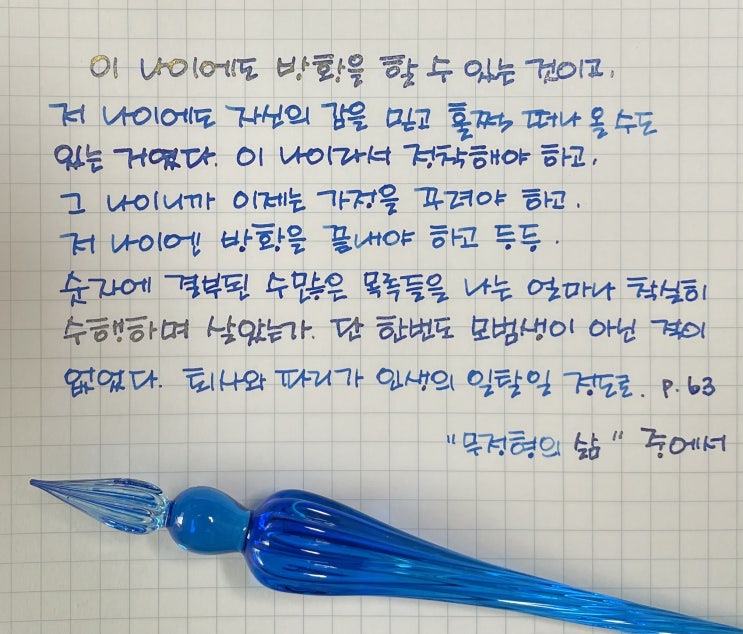 이 나이에도 방황을 할 수 있는 것이고,
저 나이에도 자신의 감을 믿고 훌쩍 떠나 올 수도
있는 거였다. 이 나이라서 정착해야 하고,
그 나이니까 이제는 가정을 꾸려야 하고,
저 나이엔 방황을 끝내야 하고 등등.
숫자에 결부된 수많은 목록들을 나는 얼마나 착실히
수행하며 살았는가. 단 한번도 모범생이 아닌 적이
없었다. 퇴사와 파리가 인생의 일탈일 정도로. p.63
"무정형의 삶" 중에서